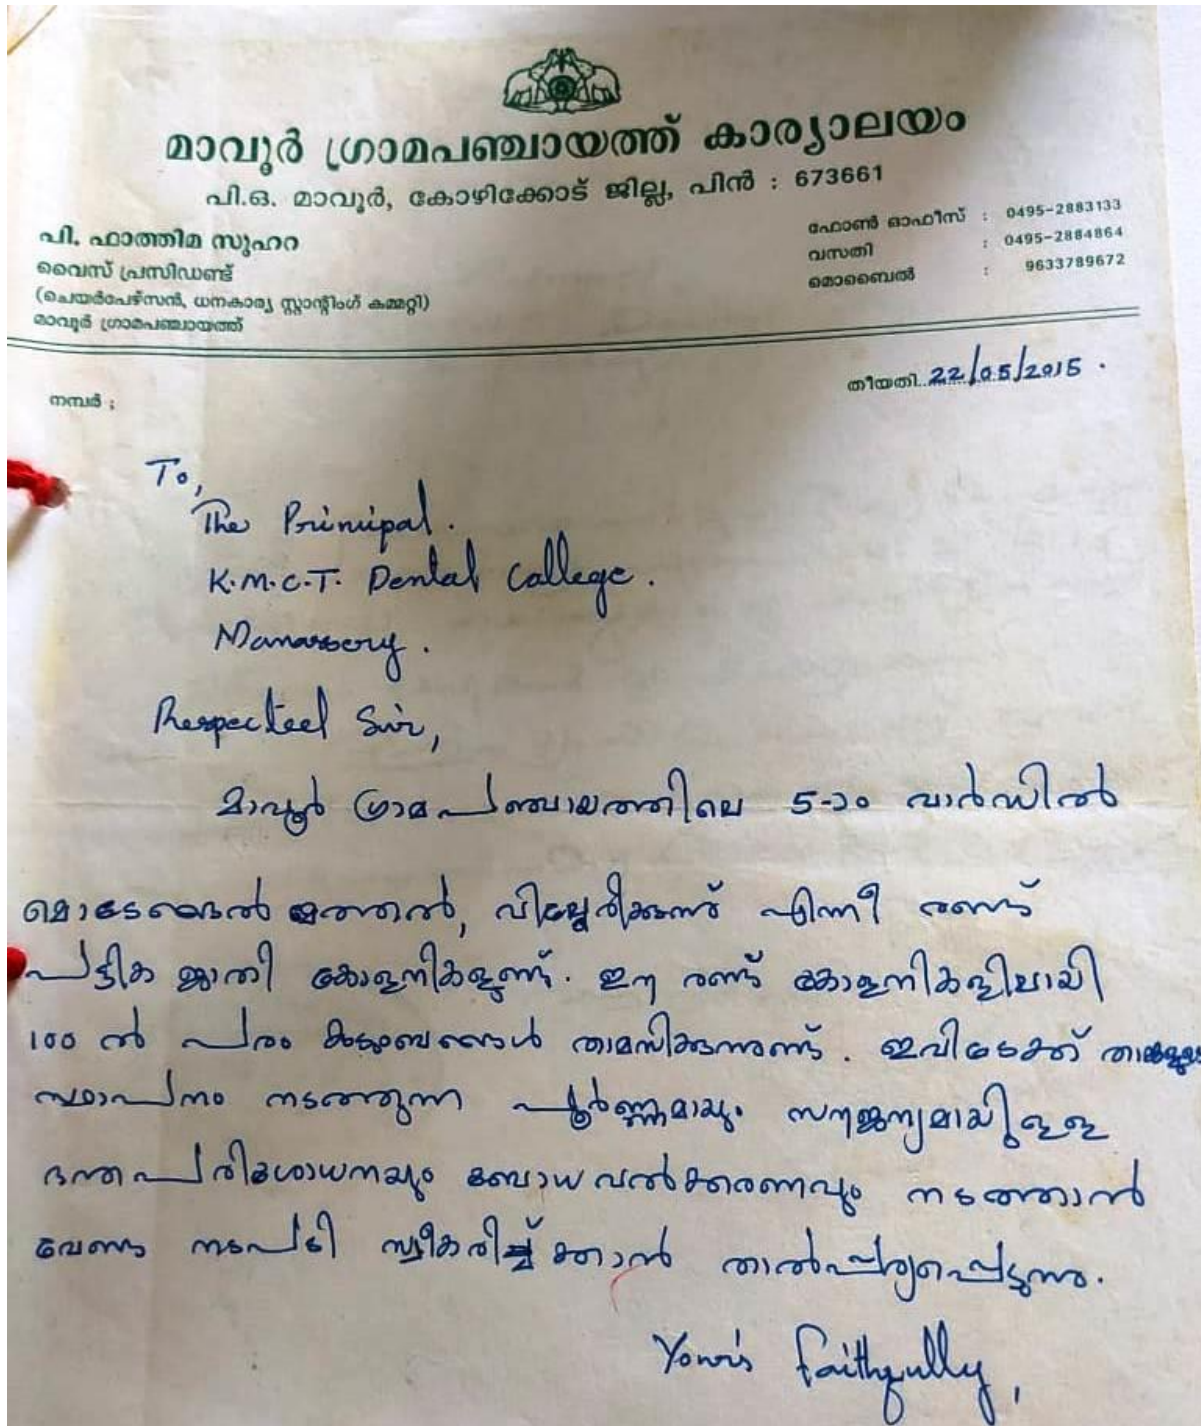 മാവൂർ ഗ്രാമപഞ്ചായത്ത് കാര്യാലയം
പി.ഒ. മാവൂർ, കോഴിക്കോട് ജില്ല, പിൻ : 673661
പി. ഫാത്തിമ സുഹറ
വൈസ് പ്രസിഡണ്ട്
(ചെയർപേഴ്സൻ, ധനകാര്യ സ്റ്റാന്റിംഗ് കമ്മറ്റി)
മാവൂർ ഗ്രാമപഞ്ചായത്ത്
ഫോൺ ഓഫീസ് : 0495-2883133
വസതി : 0495-2884864
മൊബൈൽ : 9633789672
നമ്പർ :
തീയതി 22/05/2015 .
To,
The Principal .
K.M.C.T. Dental College .
Manassery .
Respected Sir,
മാവൂർ ഗ്രാമപഞ്ചായത്തിലെ 5-ാം വാർഡിൽ
എന്നീ രണ്ട്
പട്ടിക ജാതി കോളനികളുണ്ട്. ഈ രണ്ട് കോളനികളിലായി
100 ൽ പരം കുടുംബങ്ങൾ താമസിക്കുന്നുണ്ട്. ഇവിടേക്ക്
സ്ഥാപനം നടത്തുന്ന പൂർണ്ണമായും സൗജന്യമായിട്ടുള്ള
ദന്തപരിശോധനയും ബോധവൽക്കരണവും നടത്താൻ
വേണ്ട നടപടി താൽപ്പര്യപ്പെടുന്നു.
Yours faithfully,